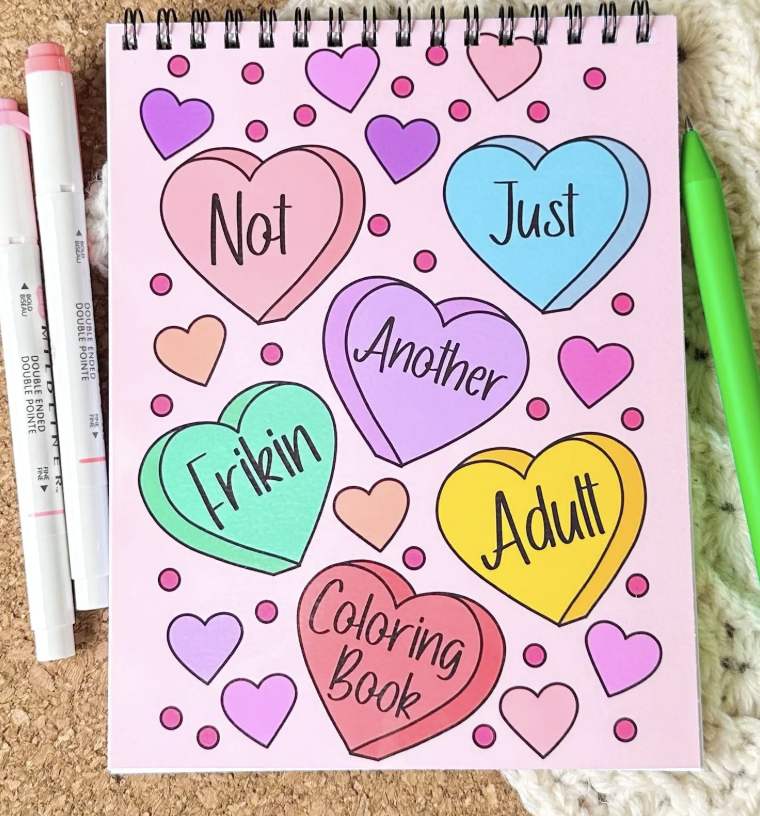 Not
Just
Another
Frikin
Adult
Coloring
Book
BOLD
BISEAU
DOUBLE ENDED
DOUBLE POINTE
FINE
FINE
BOLD
BISEAU
MILDLINER™
DOUBLE ENDED
DOUBLE POINTE
FINE
FINE